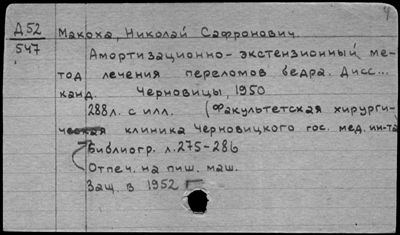 Д52
547
Макоха, Николай Сафронович.
Амортизационно-экстензионный ме-
тод лечения переломов бедра. Дисс...
канд. Черновицы, 1950
288л. с илл. (Факультетская хирурги-
ческая клиника Черновицкого гос. мед. ин-та
Библиогр. л.275-286
Отпеч. на пиш. маш.
Защ. в 1952 г